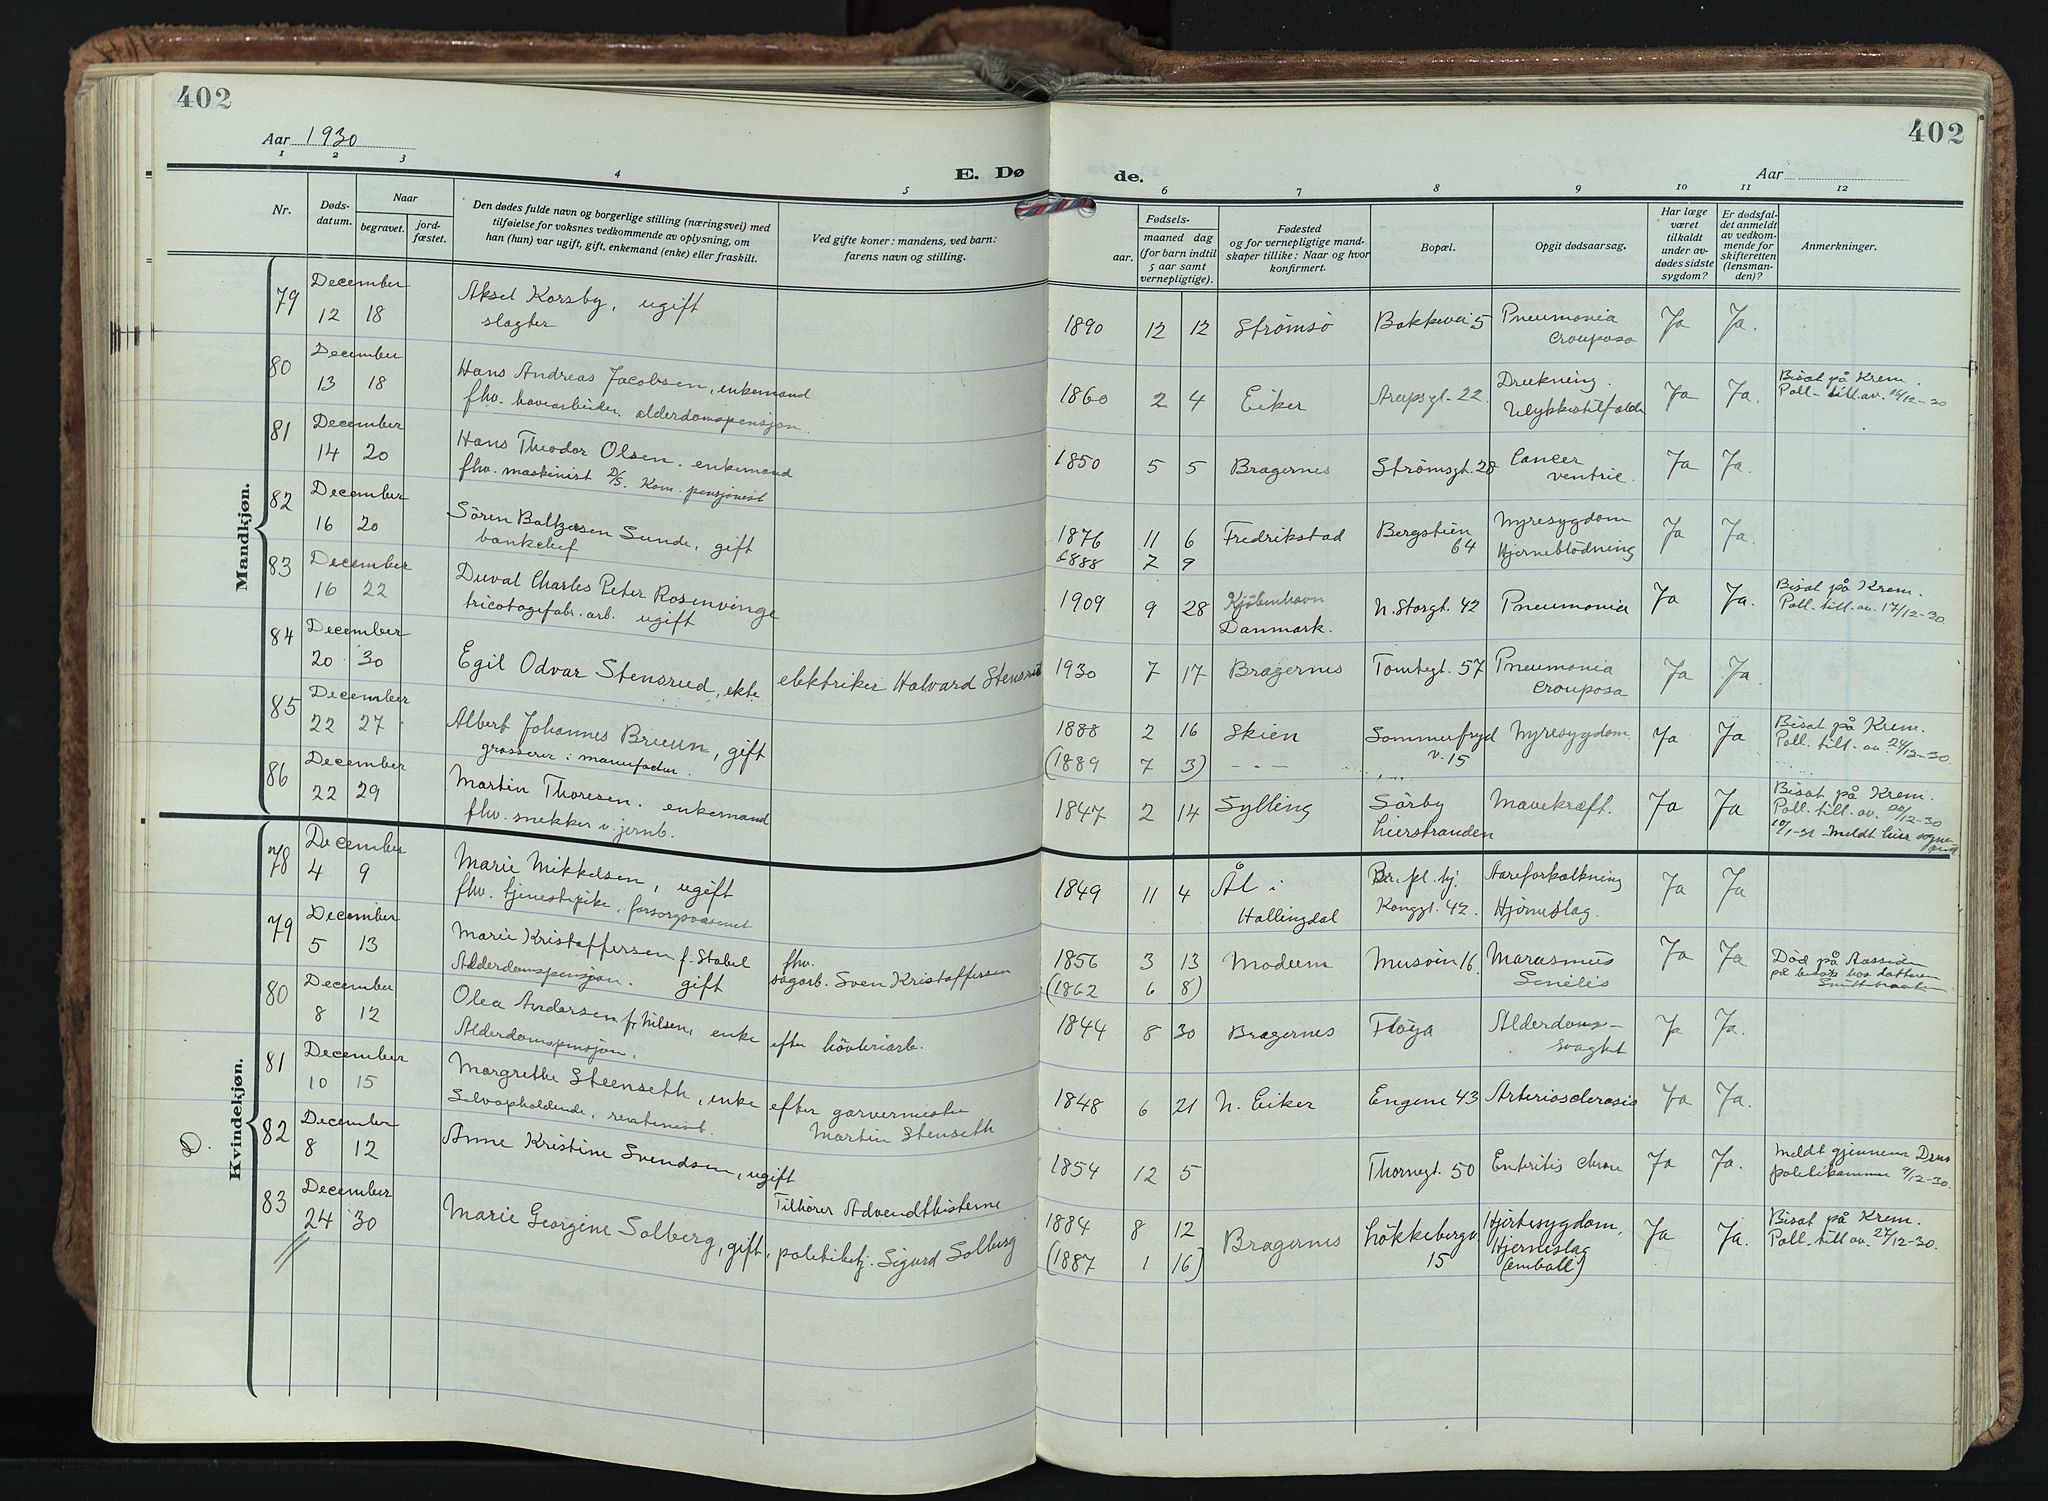 402
402
Aar 1930
E. Dø
de.
Aar
1 2 3 4 5 6 7 8 9 10 11 12
Nr.
Døds-
datum.
Naar
begravet.
jord-
fæstet.
Den dødes fulde navn og borgerlige stilling (næringsvei) med
tilføielse for voksnes vedkommende av oplysning, om
han (hun) var ugift, gift, enkemand (enke) eller fraskilt.
Ved gifte koner: mandens, ved barn:
farens navn og stilling.
Fødsels-
aar.
maaned dag
(for barn indtil
5 aar samt
vernepligtige).
Fødested
og for vernepligtige mand-
skaper tillike: Naar og hvor
konfirmert.
Bopæl.
Opgit dødsaarsag.
Har læge
været
tilkaldt
under av-
dødes sidste
sygdom?
Er dødsfal-
det anmeldt
av vedkom-
mende for
skifteretten
(lensman-
den)?
Anmerkninger.
Mandkjøn.
79 December 12 18 Aksel Korsby, ugift
slagter
1890 12 12 Strømsø Bakkevei 5 Pneumonia
crouposa
Ja Ja.
80 December 13 18 Hans Andreas Jacobsen, enkemand
fhv. havearbeider. alderdomspensjon.
1860 2 4 Eiker Arupsgt. 22. Drukning.
Ulykkestilfælde
Ja Ja. Bisat på Krem.
Poll. till. av. 16/12-30
81 December 14 20 Hans Theodor Olsen. enkemand
fhv. maskinist D/S. Kom. pensjonist
1850 5 5 Bragernes Strømsgt. 28 Cancer
ventric.
Ja Ja.
82 December 16 20 Søren Baltzersen Sunde, gift
bankchef
1876 11 6 Fredrikstad Bergstien
64
Nyresygdom
Hjerneblødning
Ja Ja.
1888 7 9
83 December 16 22 Duval Charles Peter Rosenvinge
tricotagefabr. arb. ugift
1909 9 28 Kjøbenhavn
Danmark.
N. Storgt. 42 Pneumonia Ja Ja. Bisat på Krem.
Poll. till. av. 17/12-30
84 December 20 30 Egil Odvar Stensrud, ekte elektriker Halvard Stensrud
1930 7 17 Bragernes Tomtegt. 57 Pneumonia
crouposa
Ja Ja.
85 December 22 27 Albert Johannes Bruun, gift
grosserer i manufactur.
1888 2 16 Skien Sommerfryd
v. 15
Nyresygdom Ja Ja Bisat på Krem.
Poll. till. av. 24/12-30.
(1889 7 3) - - -
86 December 22 29 Martin Thoresen. enkemand
fhv. snekker v. jernb.
1847 2 14 Sylling Sørby
Lierstranden
Mavekræft. Ja Ja Bisat på Krem.
Poll. till. av. 12-30
10/1-31 Meldt Lier sogne
Kvindekjøn.
78 December 4 9 Marie Mikkelsen, ugift
fhv. tjenestepike, forsorgsvæsenet
1849 11 4 Ål i
Hallingdal
Br. pl. hj.
Konggt. 42.
Aareforkalkning
Hjerneslag.
Ja Ja
79 December 5 13 Marie Kristoffersen f. Stabel
Alderdomspensjon. gift
fhv.
sagarb. Sven Kristoffersen
1856 3 13 Modum Musøin 16. Marasmus
Senilis
Ja Ja Død på Aassiden
på besøk hos datteren
(1862 6 8)
80 December 8 12 Olea Andersen f. Nilsen, enke
Alderdomspensjon.
efter høvleriarb.
1844 8 30 Bragernes Fløya Alderdoms-
svaghet
Ja Ja.
81 December 10 15 Margrethe Steenseth, enke
Selvopholdende, rentenist.
efter garvermester
Martin Stenseth
1848 6 21 N. Eiker Engene 43 Arteriosclerosis Ja Ja.
D. 82 December 8 12 Anne Kristine Svendsen, ugift
Tilhører Advendthisterne
1854 12 5 Thornegt. 50 Enteritis chron Ja Ja. Meldt gjennem Drms
politikammer 9/12-30.
83 December 24 30 Marie Georgine Solberg, gift, politibetj. Sigurd Solberg
1884 8 12 Bragernes Løkkebergv
15
Hjertesygdom,
Hjerneslag
(emboli)
Ja Ja. Bisat på Krem.
Poll. till av. 27/12-30.
(1887 1 16)